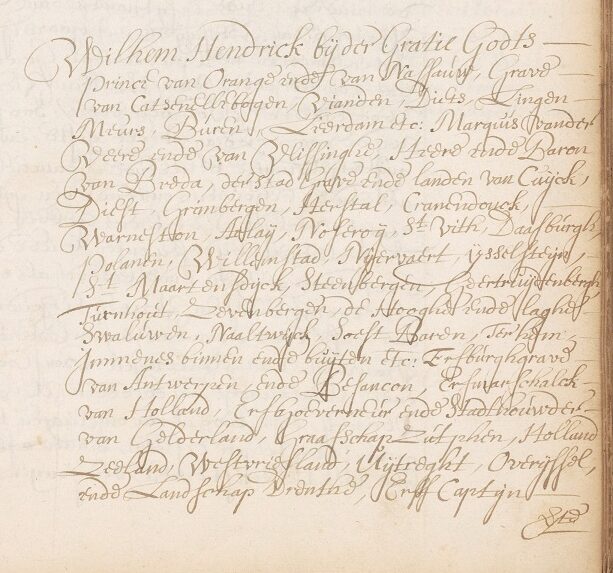 Wilhem Hendrick bij der Gratie Godts
Prince van Orange ende van Nassauw, Grave
van Catsenellebogen, Vianden, Diets, Lingen
Meurs, Buren, Leerdam etc: Marquis vander
Veere ende van Vlissinghe, Heere ende Baron
van Breda, der stad Grave ende landen van Cuijck,
Diest, Grimbergen, Herstal, Cranendonck,
Warneston, Arlaij, Noseroij, St. Vith, Daasburgh,
Polanen, Willemstad, Nijervaert, ijsselsteijn,
St. Maartensdijck, Steenbergen, Geertruijdenbergh,
Turnhout, Zevenbergen, de Hooghe ende laghe
Swaluwen, Naaltwijck, Soest Baren, Ter heim
Immenes binnen ende buijten etc: Erfburghgrave
van Antwerpen, ende Besancon, Erfmarschalck
van Holland, Erfgoeverneur ende Stadthouwder
van Gelderland, Graafschap Zutphen, Holland
Zeeland, Westvriesland, Uijtreght, Overijssel,
ende Landschap Drenthe, Erff Captijn